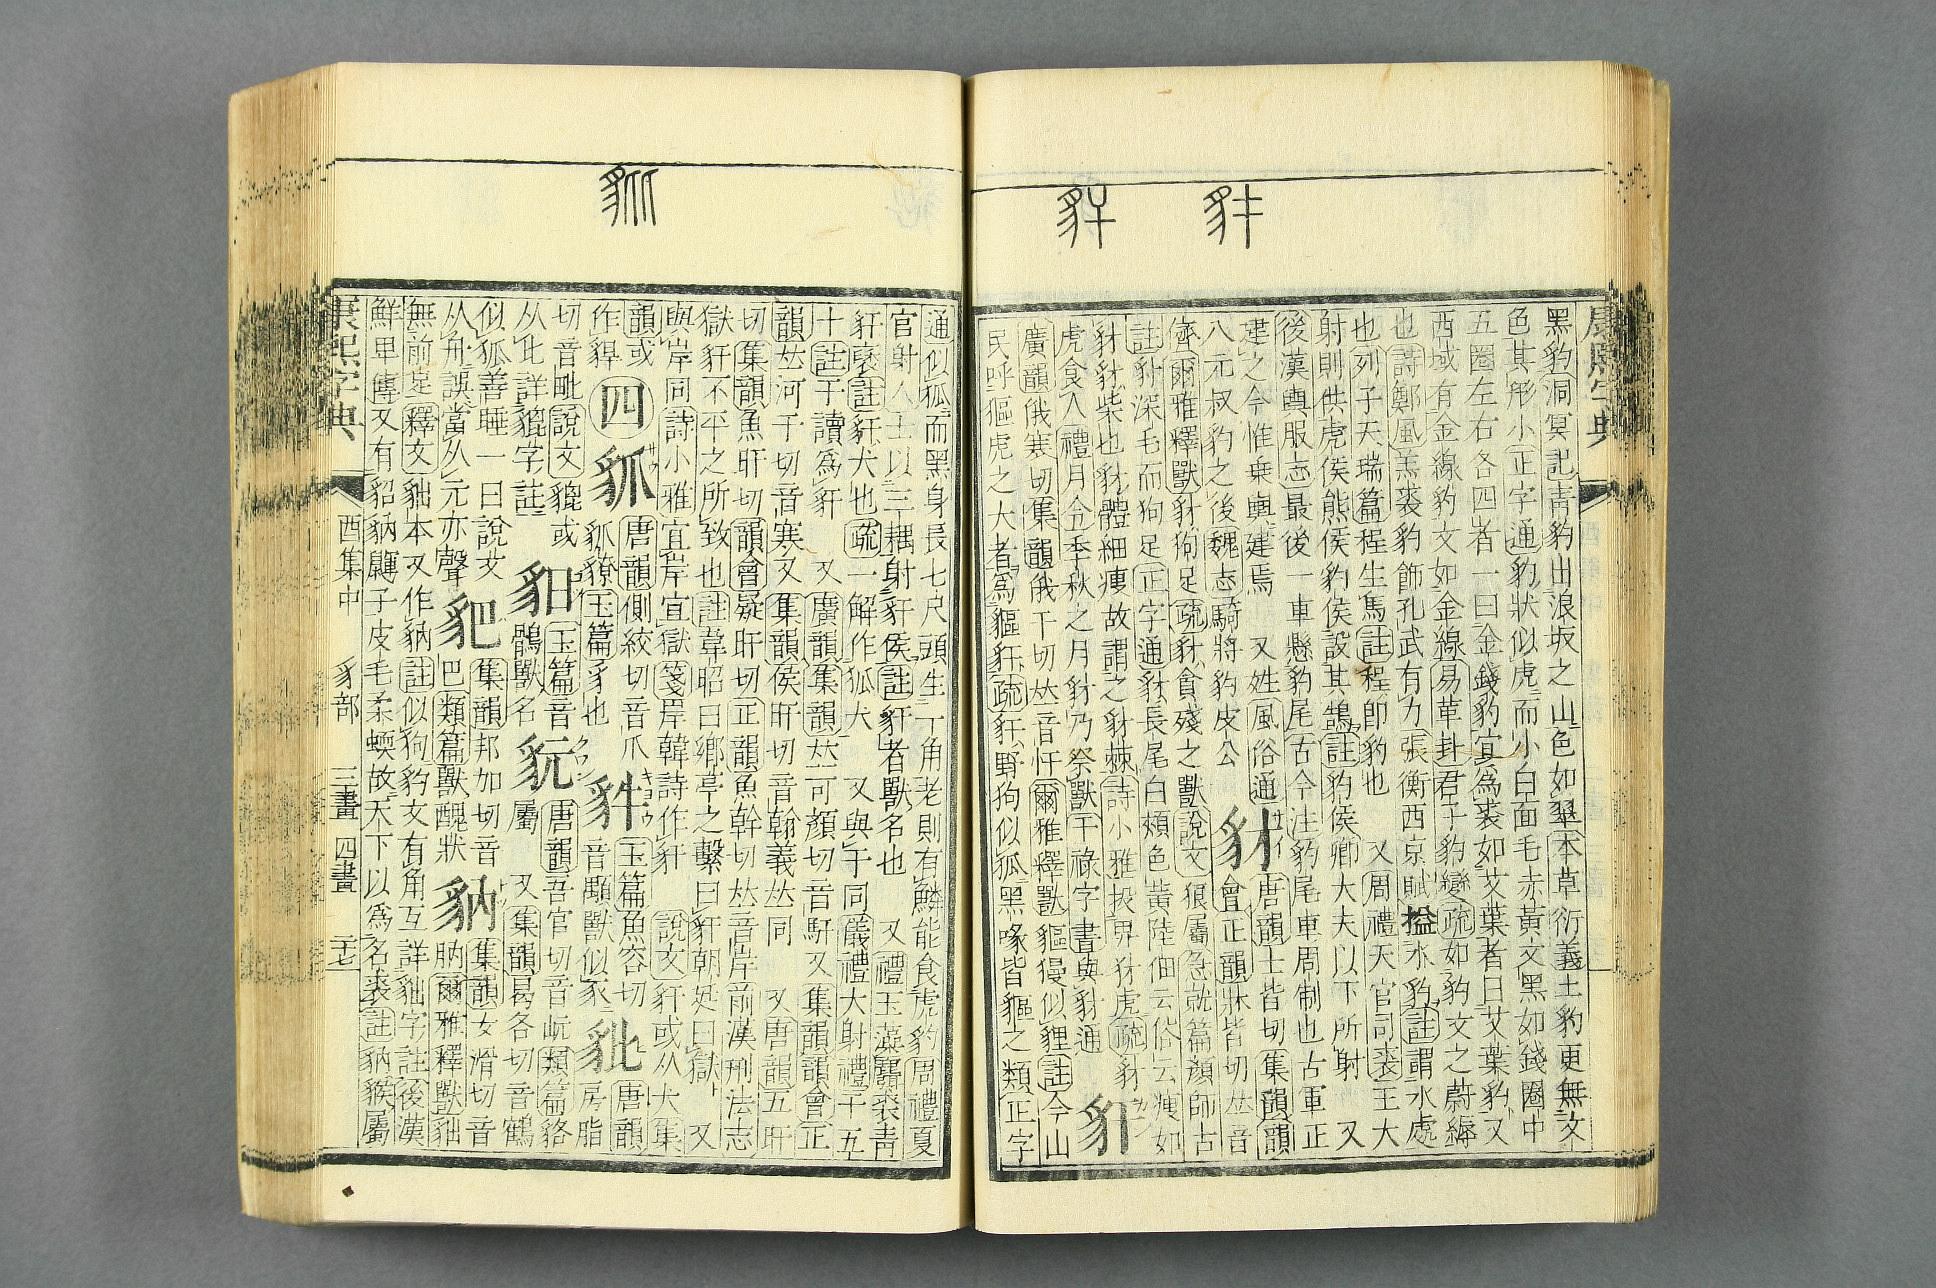 黑豹洞冥記青豹出浪坂之山色如翠本草衍義土豹更無文
色其形小正字通豹狀似虎而小白面毛赤黃文黑如錢圈中
五圈左右各四者一曰金錢豹宜爲裘如艾葉者曰艾葉豹又
西域有金線豹文如金線易革卦君子豹變疏如豹文之蔚縟
也詩鄭風羔裘豹飾孔武有力張衡西京賦搤水豹註謂水處
也列子天瑞篇程生馬註程卽豹也 又周禮天官司裘王大
射則供虎侯熊侯豹侯設其鵠註豹侯卿大夫以下所射 又
後漢輿服志最後一車懸豹尾古今注豹尾車周制也占軍正
建之今惟乗輿建焉 又姓風俗通
八元叔豹之後魏志騎將豹皮公
豺
唐韻士皆切集韻韻
會正韻牀皆切𠀤音
儕爾雅釋獸豺狗足疏豺貪殘之獸說文狼屬急就篇顏師古
註豺深毛而狗足正字通豺長尾白頰色黃陸佃云俗云瘦如
豺豺柴也豺體細瘦故謂之豺棘詩小雅投畀豺虎疏豺
虎食人禮月令季秋之月豺乃祭獸干祿字書與豺通
豻
廣韻俄寒切集韻俄干切𠀤音忓爾雅釋獸貙獌似貍註今山
民呼貙虎之大者爲貙豻疏豻野狗似狐黑喙皆貙之類正字
通似狐而黑身長七尺頭生一角老則有鱗能食虎豹周禮夏
官射人士以三耦射豻侯註豻者獸名也 又禮玉藻麛裘青
豻褎註豻犬也疏一解作狐犬 又與干同儀禮大射禮干五
十註干讀爲豻 又廣韻集韻𠀤可顏切音馯又集韻韻會正
韻𠀤河干切音寒又集韻侯旰切音翰義𠀤同 又唐韻五旰
切集韻魚旰切韻會疑旰切正韻魚幹切𠀤音岸前漢刑法志
獄豻不平之所致也註韋昭曰鄉亭之繫曰豻朝廷曰獄 又
與岸同詩小雅宜岸宜獄箋岸韓詩作豻 說文豻或从犬集
韻或
作貋
四
唐韻側絞切音爪
玉篇豸也
玉篇魚容切
音顒獸似豕
豼
唐韻
房脂
切音毗說文貔或
从比詳貔字註
玉篇音
鶻獸名
貦
唐韻吾官切音岏類篇貉
屬 又集韻曷各切音鶴
似狐善睡一曰說文
从舟誤當从元亦聲
豝
集韻邦加切音
巴類篇獸醜狀
豽
集韻女滑切音
肭爾雅釋獸貀
無前足釋文貀本又作豽註似狗豹文有角互詳貀字註後漢
鮮卑傳又有貂豽鼲子皮毛柔蝡故天下以爲名裘註豽猴屬
康熙字典 酉集中 豸部 三畫 四畫 二七